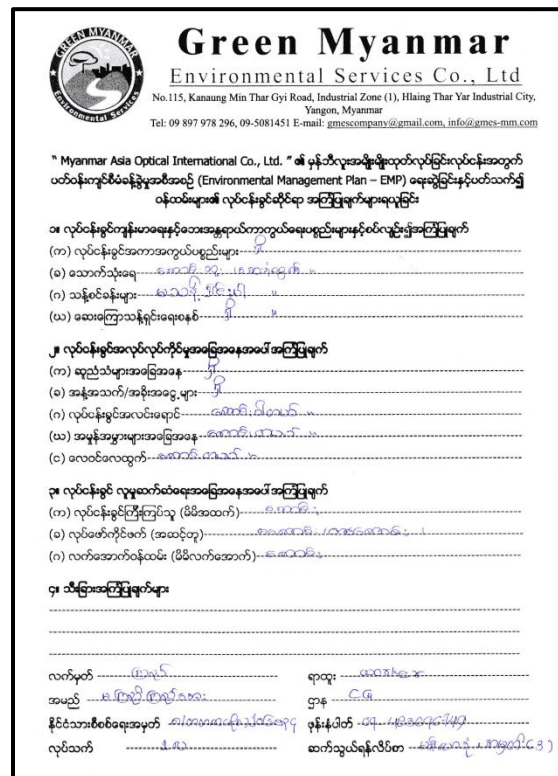 GREEN MYANMAR
Environmental Services
Green Myanmar
Environmental Services Co., Ltd
No.115, Kanaung Min Thar Gyi Road, Industrial Zone (1), Hlaing Thar Yar Industrial City,
Yangon, Myanmar
Tel: 09 897 978 296, 09-5081451 E-mail: gmescompany@gmail.com, info@gmes-mm.com
" Myanmar Asia Optical International Co., Ltd. " ၏ မှန်ဘီလူးအမျိုးမျိုးထုတ်လုပ်ခြင်းလုပ်ငန်းအတွက်
ပတ်ဝန်းကျင်စီမံခန့်ခွဲမှုအစီအစဉ် (Environmental Management Plan – EMP) ရေးဆွဲခြင်းနှင့်ပတ်သက်၍
ဝန်ထမ်းများ၏ လုပ်ငန်းခွင်ဆိုင်ရာ အကြံပြုချက်များရယူခြင်း
၁။ လုပ်ငန်းခွင်ကျန်းမာရေးနှင့်ဘေးအန္တရာယ်ကာကွယ်ရေးပစ္စည်းများနှင့်စပ်လျဉ်း၍အကြံပြုချက်
(က) လုပ်ငန်းခွင်အကာအကွယ်ပစ္စည်းများ ရှိ
(ခ) သောက်သုံးရေ
(ဂ) သန့်စင်ခန်းများ
(ဃ) ဆေးကြောသန့်ရှင်းရေးစနစ် ရှိ
၂။ လုပ်ငန်းခွင်အလုပ်လုပ်ကိုင်မှုအခြေအနေအပေါ် အကြံပြုချက်
(က) ဆူညံသံများအခြေအနေ ရှိ
(ခ) အနံ့အသက်/အခိုးအငွေ့များ ရှိ
(ဂ) လုပ်ငန်းခွင်အလင်းရောင် ကောင်းပါတယ်
(ဃ) အမှုန်အမွှားများအခြေအနေ ကောင်းတယ်
(င) လေဝင်လေထွက် ကောင်းတယ်
၃။ လုပ်ငန်းခွင် လူမှုဆက်ဆံရေးအခြေအနေအပေါ် အကြံပြုချက်
(က) လုပ်ငန်းခွင်ကြီးကြပ်သူ (မိမိအထက်) ကောင်း
(ခ) လုပ်ဖော်ကိုင်ဖက် (အဆင့်တူ)
(ဂ) လက်အောက်ဝန်ထမ်း (မိမိလက်အောက်) ကောင်း
၄။ သီးခြားအကြံပြုချက်များ
လက်မှတ်
ရာထူး
အမည်
ဌာန CG
နိုင်ငံသားစိစစ်ရေးအမှတ်
ဖုန်းနံပါတ်
လုပ်သက်
ဆက်သွယ်ရန်လိပ်စာ